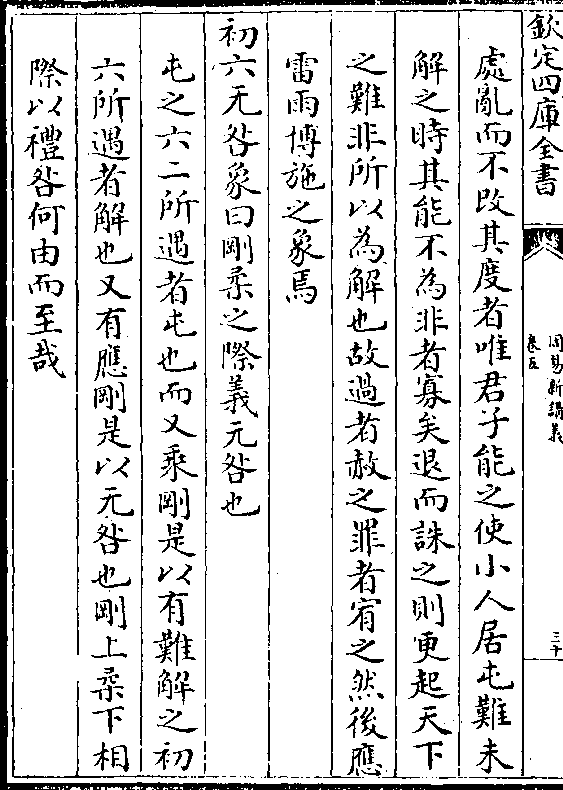 欽定四庫全書
周易新講義
卷五
三十
處亂而不改其度者唯君子能之使小人居屯難未
解之時其能不為非者寡矣退而誅之則更起天下
之難非所以為解也故過者赦之罪者宥之然後應
雷雨博施之象焉
初六无咎象曰剛柔之際義无咎也
屯之六二所遇者屯也而又乘剛是以有難解之初
六所遇者解也又有應剛是以无咎也剛上柔下相
際以禮咎何由而至哉